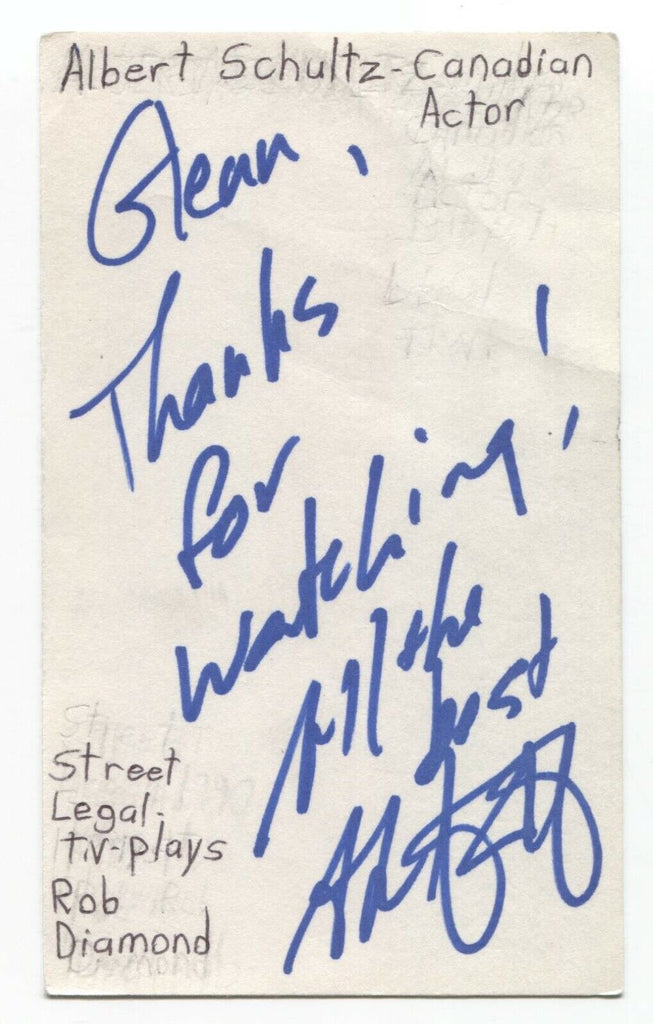 Albert Schultz-Canadian
Actor
Glenn,
Thanks
for
watching!
All the
best
Street
Legal-
tv-plays
Rob
Diamond